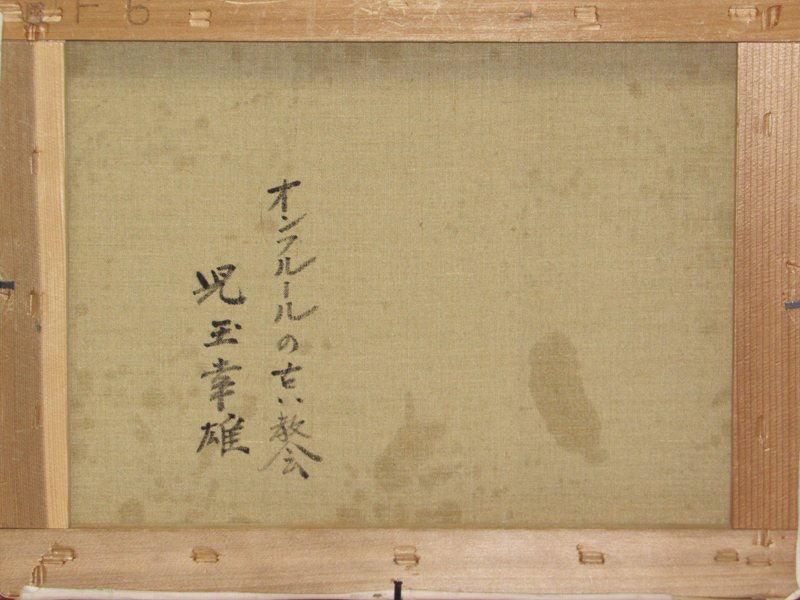 オンフルールの古い教会
児玉幸雄